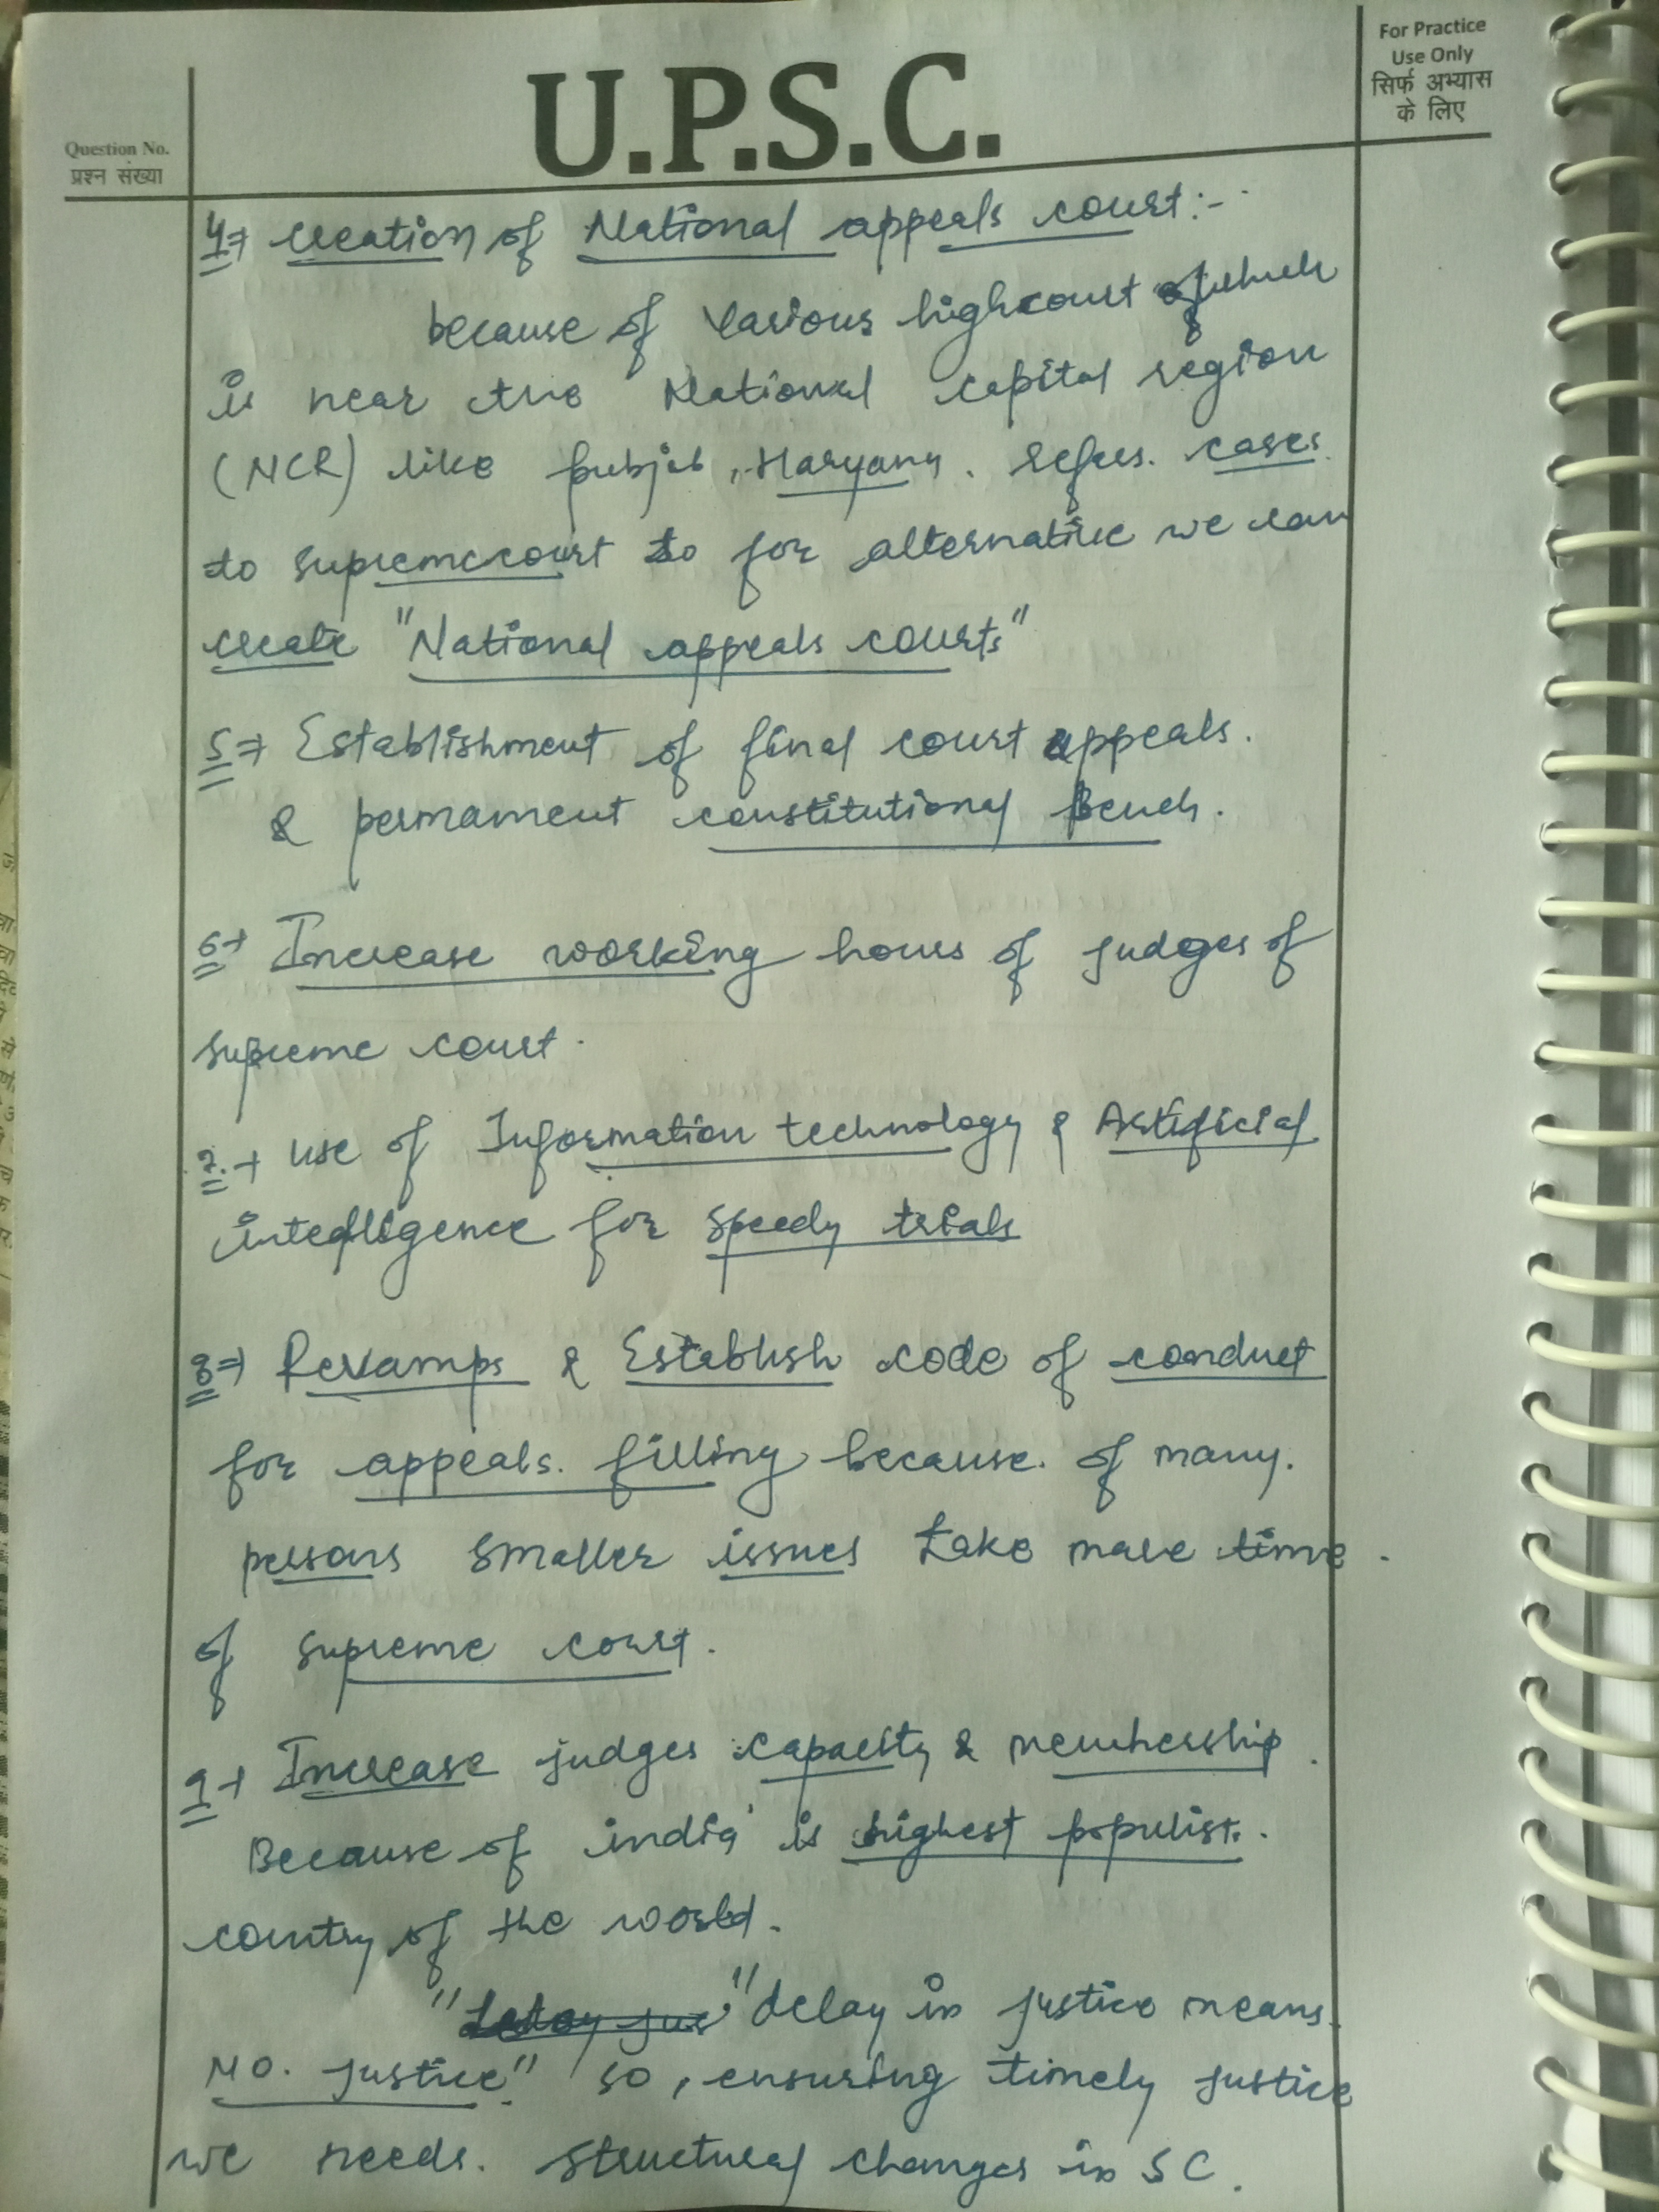 For Practice
Use Only
सिर्फ अभ्यास
के लिए
U.P.S.C.
Question No.
प्रश्न संख्या
4⇒ creation of National appeals court:-
because of various highcourt of which
is near the National capital region
(NCR) like punjab, Haryany. refers. cases.
to supremecourt so for alternative we can
create "National appeals courts"
5⇒ Establishment of final court appeals.
& permament constitutional Bench.
6→ Increase working hours of judges of
supreme court.
7.→ use of Information technology & Artificial
intelligence for speedy trials
8⇒ Revamps & Establish code of conduct
for appeals. filling because. of many.
persons smaller issues take more time.
of supreme court.
9→ Increase judges capacity & membership.
Because of india is highest populist.
country of the world.
"delay in justice means.
NO. justice." so, ensuring timely justice
we needs. structural changes in SC.